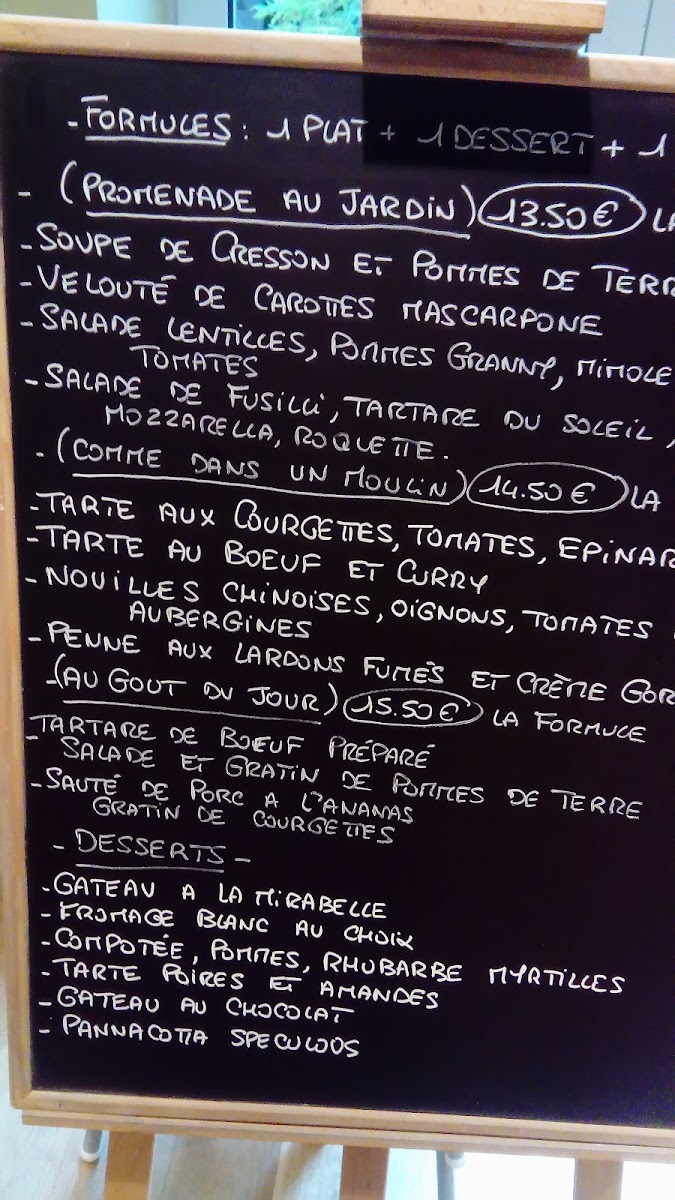 - FORMULES : 1 PLAT + 1 DESSERT + 1
- (PROMENADE AU JARDIN) 13.50€ LA
- SOUPE DE CRESSON ET POMMES DE TERR
- VELOUTÉ DE CAROTTES MASCARPONE
- SALADE LENTILLES, POMMES GRANNY, MIMOLE
TOMATES
- SALADE DE FUSILLI, TARTARE DU SOLEIL,
MOZZARELLA, ROQUETTE.
- (COMME DANS UN MOULIN) 14.50€ LA
- TARTE AUX COURGETTES, TOMATES, EPINAR
- TARTE AU BOEUF ET CURRY
- NOUILLES CHINOISES, OIGNONS, TOMATES
AUBERGINES
- PENNE AUX LARDONS FUMÉS ET CRÈME GOR
- (AU GOUT DU JOUR) 15.50€ LA FORMULE
- TARTARE DE BOEUF PRÉPARÉ
SALADE ET GRATIN DE POMMES DE TERRE
- SAUTÉ DE PORC A L'ANANAS
GRATIN DE COURGETTES
- DESSERTS -
- GATEAU A LA MIRABELLE
- FROMAGE BLANC AU CHOIX
- COMPOTÉE, POMMES, RHUBARBE MYRTILLES
- TARTE POIRES ET AMANDES
- GATEAU AU CHOCOLAT
- PANNACOTTA SPECULOOS